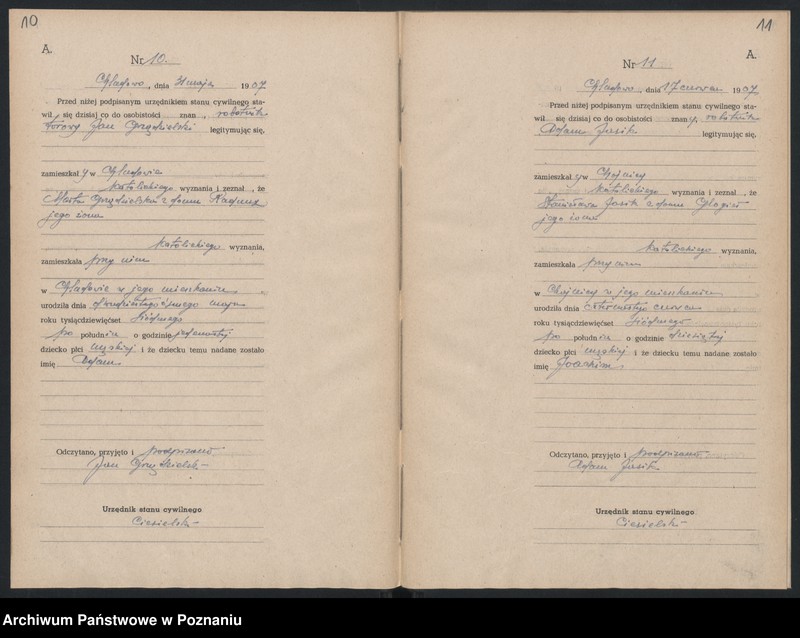 10
A.
Nr 10.
, dnia 31 maja 1907
Przed niżej podpisanym urzędnikiem stanu cywilnego sta-
wił się dzisiaj co do osobistości znan , robotnik
torowy Jan legitymując się,
zamieszkały w
katolickiego wyznania i zeznał , że
Marta z domu
jego żona
katolickiego wyznania,
zamieszkała przy nim
w w jego mieszkaniu
urodziła dnia maja
roku tysiącdziewięćset siódmego
po południu o godzinie jedenastej
dziecko płci męskiej i że dziecku temu nadane zostało
imię Adam.
Odczytano, przyjęto i podpisano
Jan
Urzędnik stanu cywilnego
Ciesielski
11
A.
Nr 11
, dnia 17 czerwca 1907
Przed niżej podpisanym urzędnikiem stanu cywilnego sta-
wił się dzisiaj co do osobistości znany, robotnik
Adam Jasik legitymując się,
zamieszkały w
katolickiego wyznania i zeznał , że
Stanisława Jasik z domu
jego żona
katolickiego wyznania,
zamieszkała przy nim
w w jego mieszkaniu
urodziła dnia czerwca
roku tysiącdziewięćset siódmego
po południu o godzinie dziesiątej
dziecko płci męskiej i że dziecku temu nadane zostało
imię Joachim.
Odczytano, przyjęto i podpisano
Adam Jasik
Urzędnik stanu cywilnego
Ciesielski
Archiwum Państwowe w Poznaniu